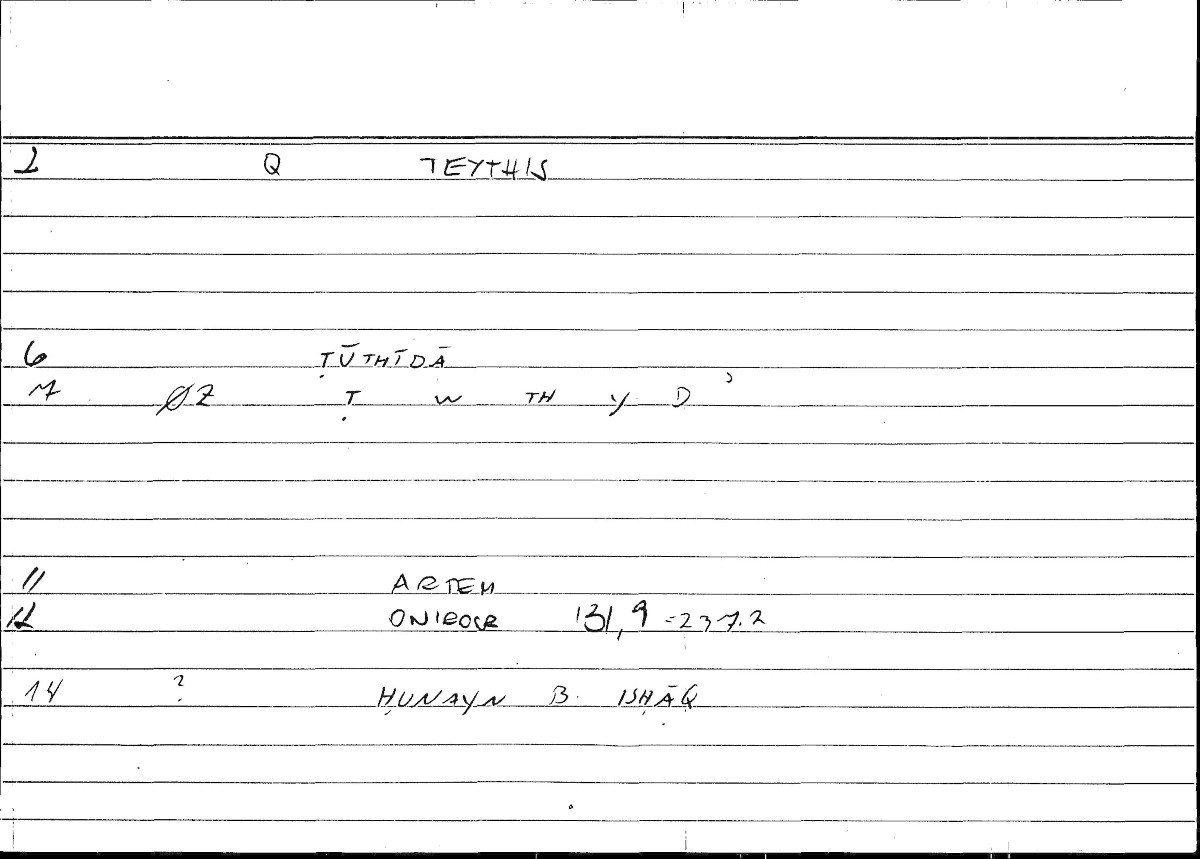 2 Q TEYTHIS
6 ṬŪTHĪDĀ
7 ØZ Ṭ W TH Y D ʾ
11 ARTEM
12 ONIROCR 131,9 =237.2
14 ? ḤUNAYN B. ISḤĀQ